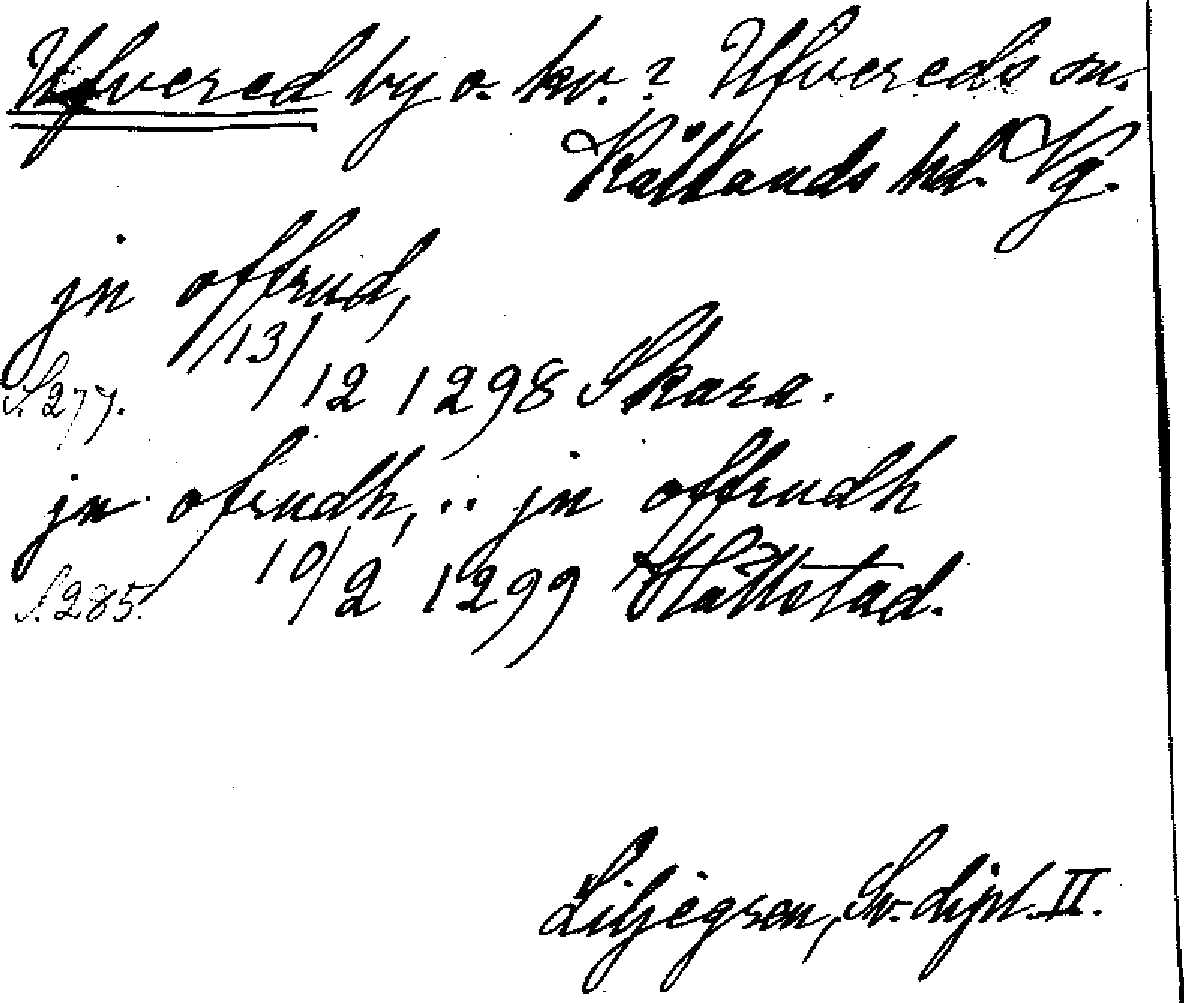 Ufvered by o. kv.? Ufvereds sn.
Kållands hd. Vg.
jn offrud,
S. 277. 13/12 1298 Skara.
jn ofrudh, .. jn offrudh
S. 285. 10/2 1299 Hättstad.
Liljegren, Sv. dipl. II.